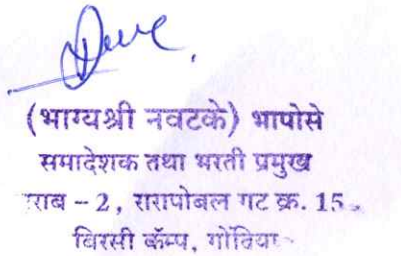 (भाग्यश्री नवटके) भापोसे
समादेशक तथा भरती प्रमुख
राब - 2, रारापोबल गट क्र. 15.
बिरसी कॅम्प, गोंदिया